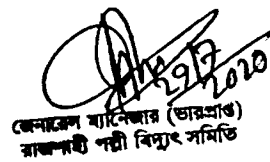 29/7/2020
জেনারেল ম্যানেজার (ভারপ্রাপ্ত)
রাজশাহী পল্লী বিদ্যুৎ সমিতি